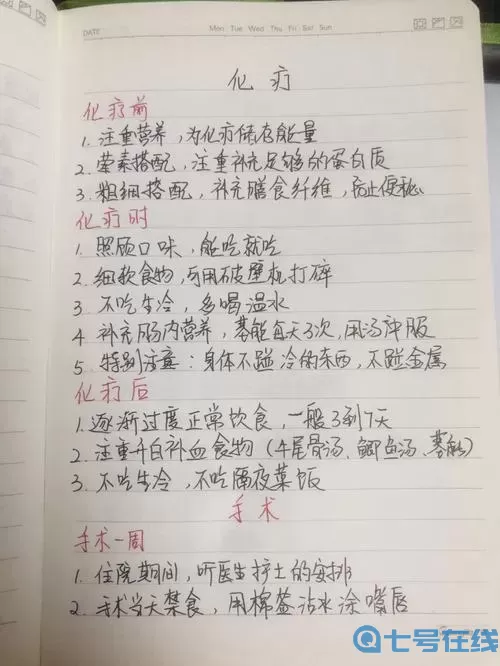 DATE
Mon Tue Wed Thu Fri Sat Sun
化疗
化疗前
1. 注重营养，为化疗储存能量
2. 荤素搭配，注重补充足够的蛋白质
3. 粗细搭配，补充膳食纤维，防止便秘
化疗时
1. 照顾口味，能吃就吃
2. 细软食物，可用破壁机打碎
3. 不吃生冷，多喝温水
4 补充肠内营养，荃能每天3次，用汤冲服
5. 特别注意：身体不碰冷的东西，不碰金属
化疗后
1. 逐渐过度正常饮食，一般3到7天
2. 注重升白补血食物（牛尾骨汤、鲫鱼汤、荃能）
3. 不吃生冷，不吃隔夜菜饭
手术
手术一周
1. 住院期间，听医生护士的安排
2. 手术当天禁食，用棉签沾水涂嘴唇
七号在线